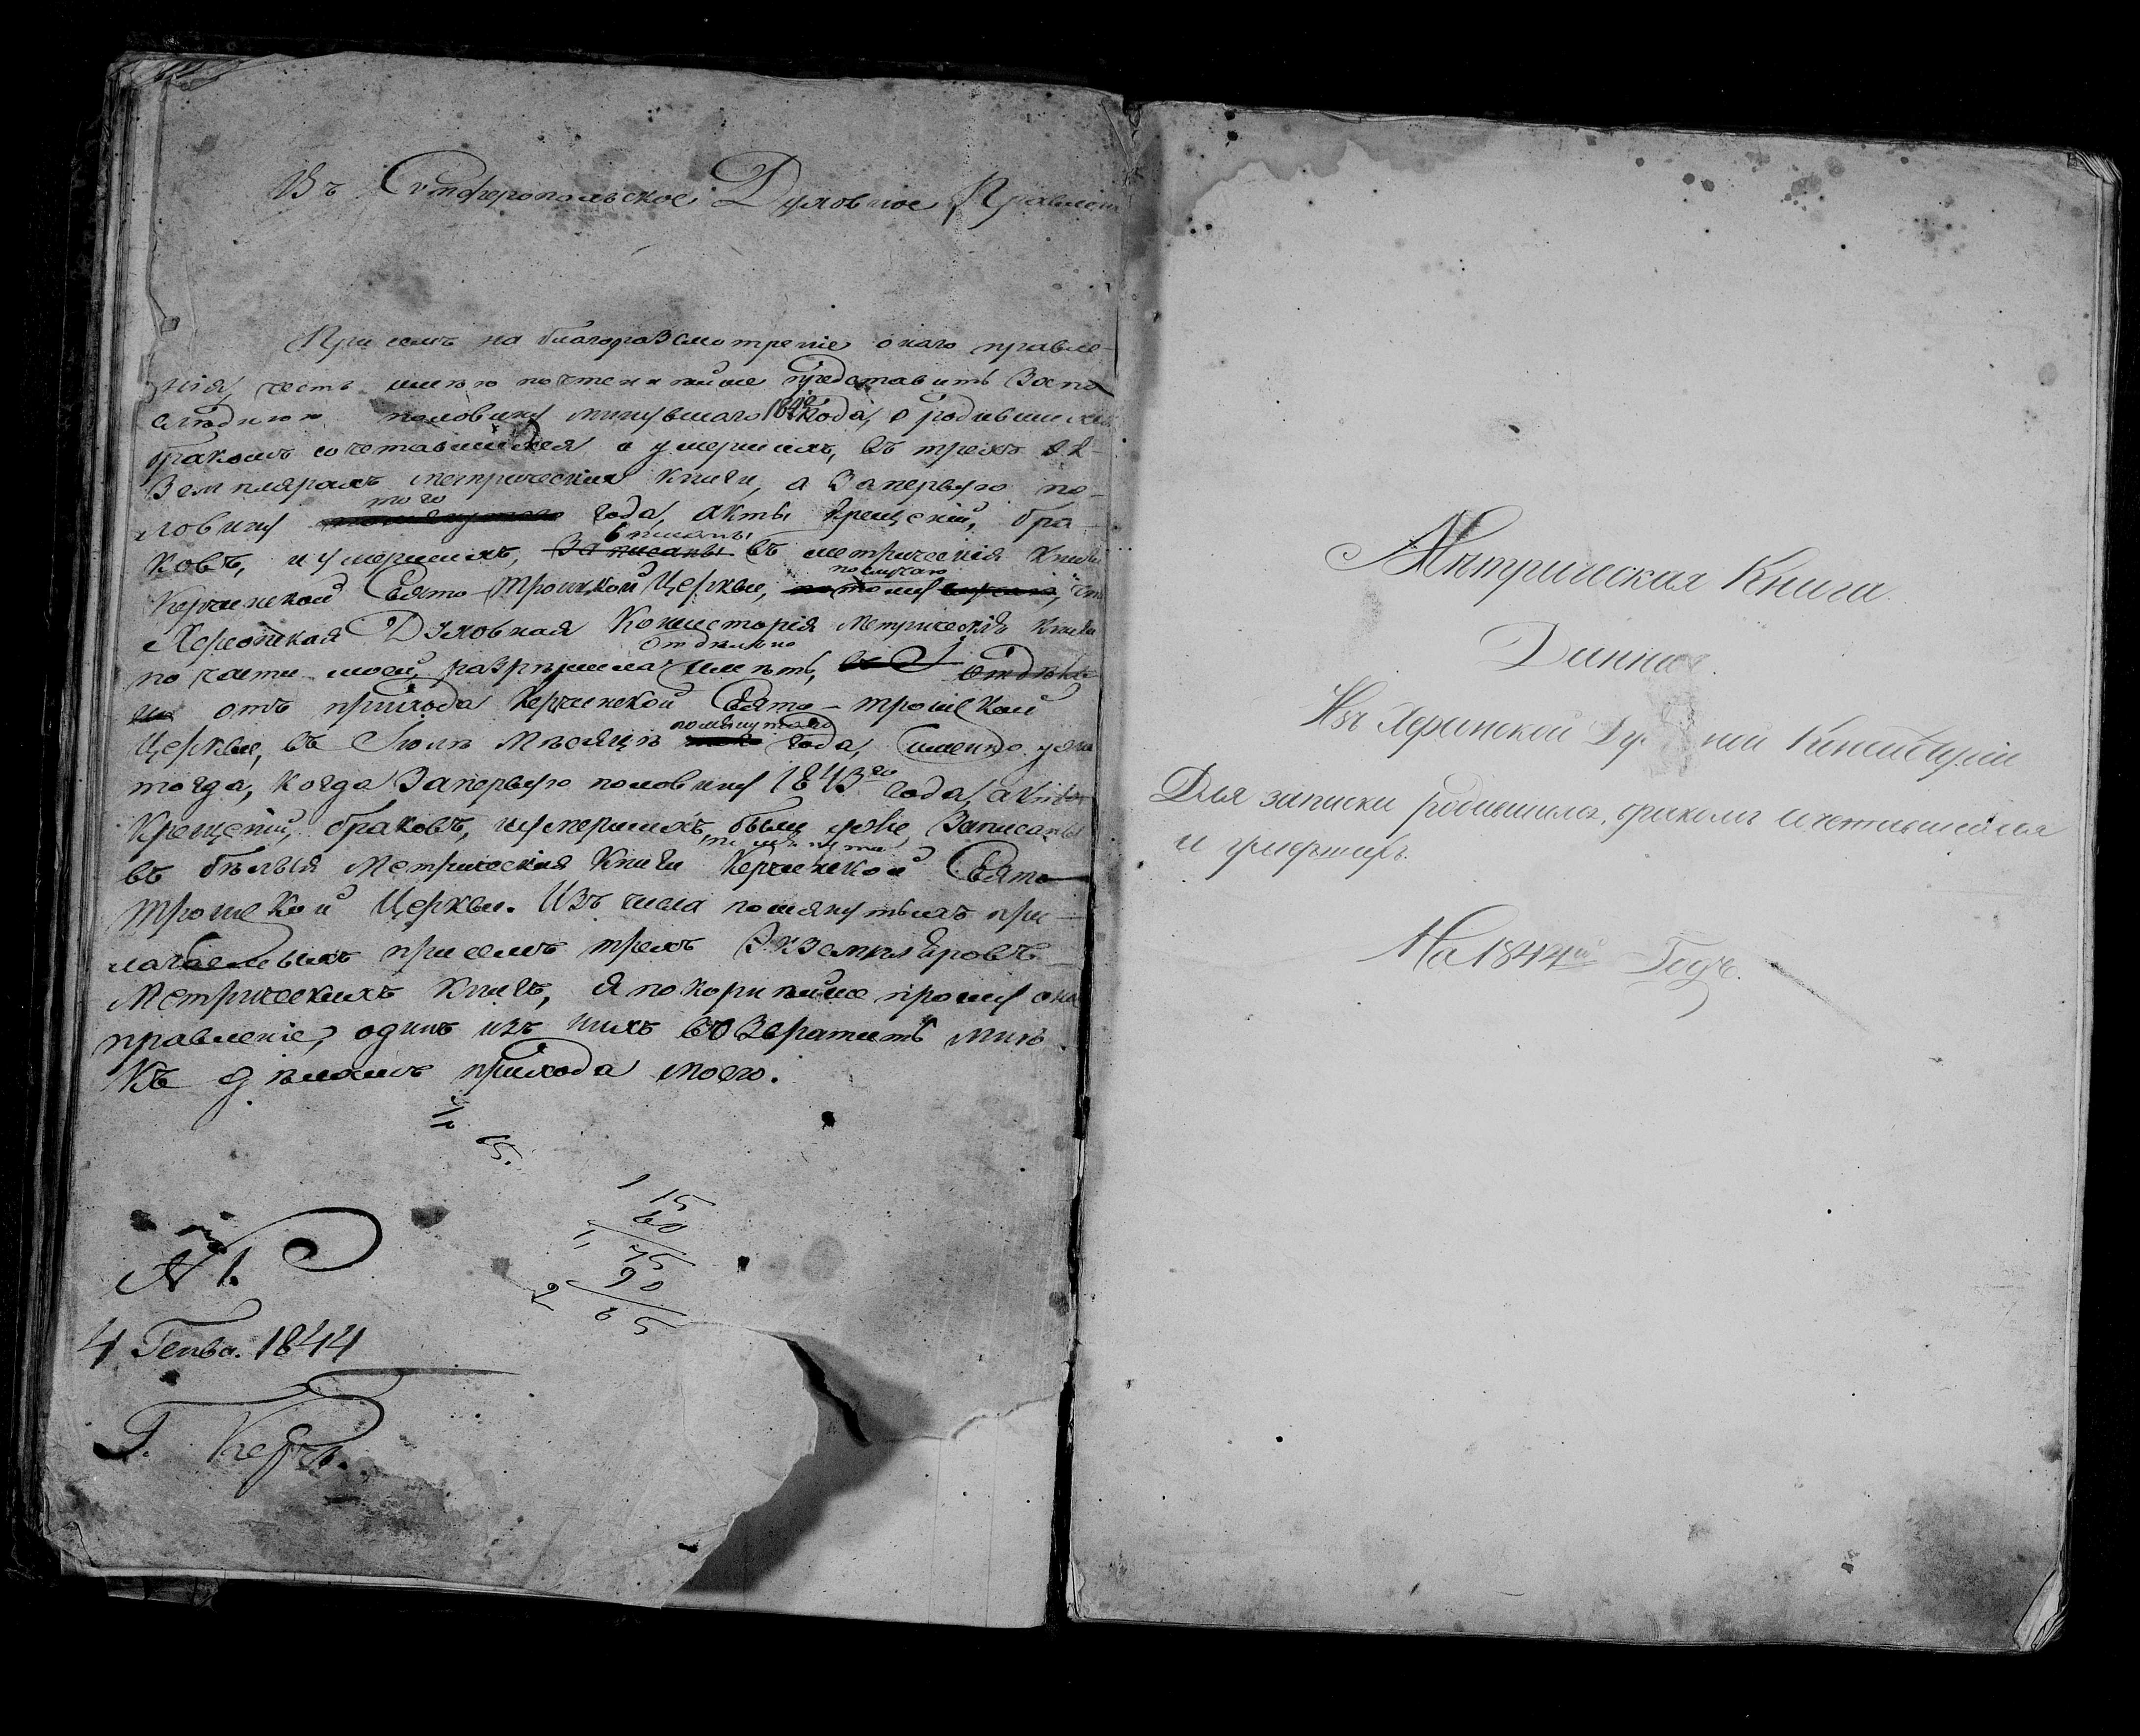 Въ Симферопольское Духовное Правлені
При семъ на благоразсмотреніе онаго правле-
нія, честь имею почтеннейше представить За по-
следнюю половину минувшаго года, о родившихся
бракомъ сочетавшихся и умершихъ, въ трехъ эк-
земплярахъ метрическия книги, а За первую по-
того
ловину года, акты крещеній, бра-
вписаны
ковъ, и умершихъ, Записаны въ метрическія Книги
по случаю
Керченской Свято-Троицкой Церкви, потому что
Херсонская Духовная Консисторія метрическія Книги
отдельно
по части моей, разрешила иметь,
отъ прихода Керченской Свято-троицкой
помянутаго
Церкви, въ Іюле Месяце года, именно уже
тогда, когда За первую половину 1843го года, акты
Крещеній, браковъ, и умершихъ, были уже Записаны
въ белыя Метрическія Книги Керченской Свято
Троицкой Церкви. Изъ числа помянутыхъ при-
лагаемыхъ при семъ трехъ Экземпляровъ
Метрическихъ Книгъ, я покорнейше прошу оно
правленіе, одинъ изъ нихъ возвратить мне
Къ деламъ прихода моего.
65.
1 15
60
1, 75
90
2 65
№ 1.
4 Генва. 1844
Г. Керчь.
Метрическая Книга
Данная
Изъ Херсонской Ду ной Консисторіи
Для записки родившихся, бракомъ сочетавшихся
и умершихъ.
На 1844й Годъ.